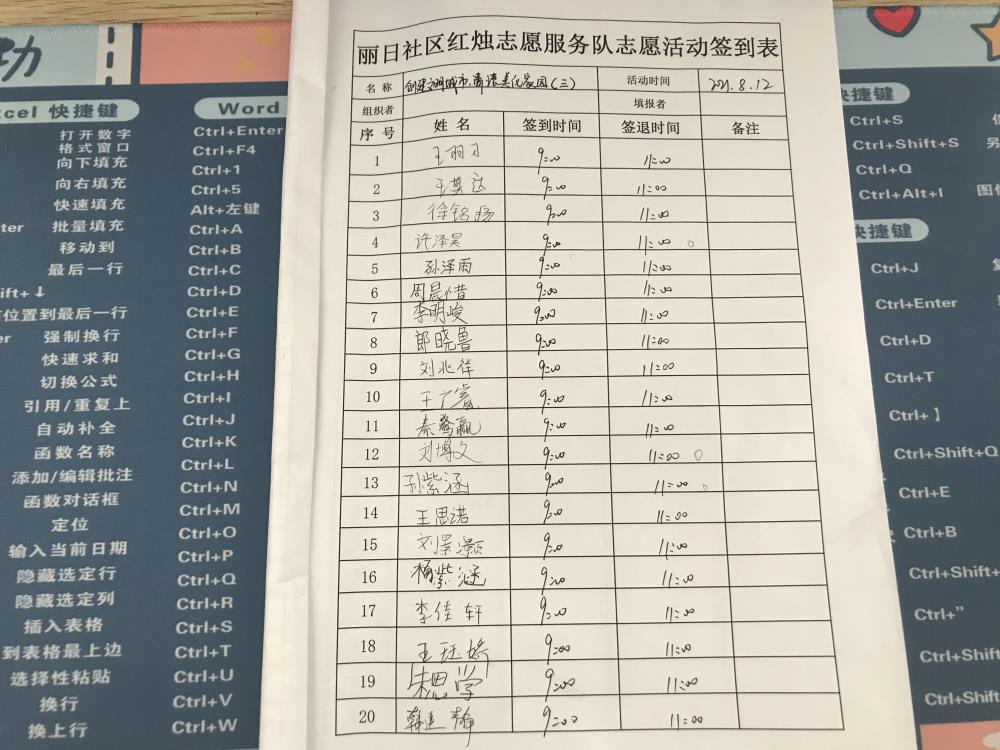 功
Excel 快捷键
Word
打开数字
格式窗口
向下填充
向右填充
快速填充
批量填充
移动到
最后一行
ift+↓
位置到最后一行
强制换行
快速求和
切换公式
引用/重复上
自动补全
函数名称
添加/编辑批注
函数对话框
定位
输入当前日期
隐藏选定行
隐藏选定列
插入表格
到表格最上边
选择性粘贴
换行
换上行
Ctrl+Enter
Ctrl+F4
Ctrl+1
Ctrl+5
Alt+左键
Ctrl+A
Ctrl+B
Ctrl+C
Ctrl+D
Ctrl+E
Ctrl+F
Ctrl+G
Ctrl+H
Ctrl+I
Ctrl+J
Ctrl+K
Ctrl+L
Ctrl+N
Ctrl+M
Ctrl+O
Ctrl+P
Ctrl+Q
Ctrl+R
Ctrl+S
Ctrl+T
Ctrl+U
Ctrl+V
Ctrl+W
丽日社区红烛志愿服务队志愿活动签到表
名称 创建文明城市,清洁美化家园(三) 活动时间 2021.8.12
组织者 填报者
序号 姓名 签到时间 签退时间 备注
1 王羽习 9:00 11:00
2 王英达 9:00 11:00
3 徐铭扬 9:00 11:00
4 许泽昊 9:00 11:00
5 孙泽雨 9:00 11:00
6 周晨惜 9:00 11:00
7 李明峻 9:00 11:00
8 郎晓鲁 9:00 11:00
9 刘兆祥 9:00 11:00
10 王 9:00 11:00
11 秦 赢 9:00 11:00
12 刘博文 9:00 11:00
13 孙紫涵 9:00 11:00
14 王思诺 9:00 11:00
15 刘景灏 9:00 11:00
16 杨紫涵 9:00 11:00
17 李佳轩 9:00 11:00
18 王珏娇 9:00 11:00
19 朱思学 9:00 11:00
20 韩 静 9:00 11:00
快捷键
Ctrl+S
Ctrl+Shift+S 另
Ctrl+Q
Ctrl+Alt+I 图
快捷键
Ctrl+J
Ctrl+Enter
Ctrl+D
Ctrl+T
Ctrl+】
Ctrl+Shift+Q
Ctrl+E
Ctrl+B
Ctrl+Shift+
Ctrl+”
Ctrl+Shift
Ctrl+Shift